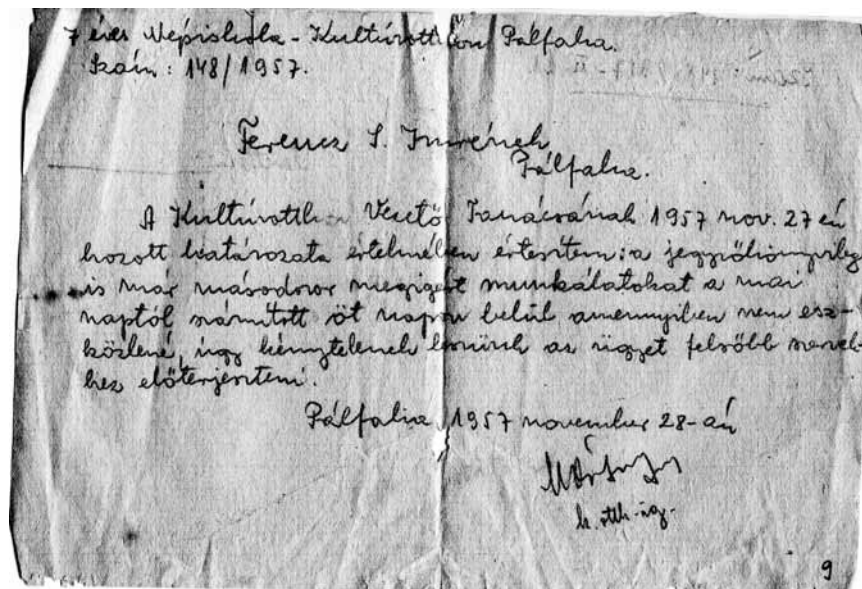 7 éves Népiskola - Kultúrotthon Pálfalva.
Szám: 148/1957.
Ferencz S. Imrének
Pálfalva.
A Kultúrotthon Vezető Tanácsának 1957 nov. 27 én
hozott határozata értelmében értesítem: a jegyzőkönyvileg
is már másodszor megigért munkálatokat a mai
naptól számított öt napon belül amennyiben nem esz-
közlené, úgy kénytelenek leszünk az ügyet felsőbb szervek-
hez előterjeszteni.
Pálfalva, 1957 november 28-án
k. otth. ig.
9